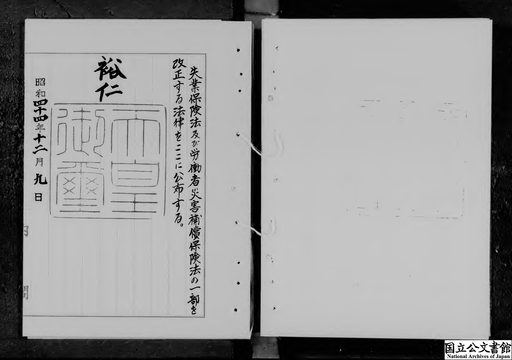 失業保険法及び労働者災害補償保険法の一部を
改正する法律をここに公布する。
裕仁
天皇
御璽
昭和四十四年十二月九日
内閣
国立公文書館
National Archives of Japan